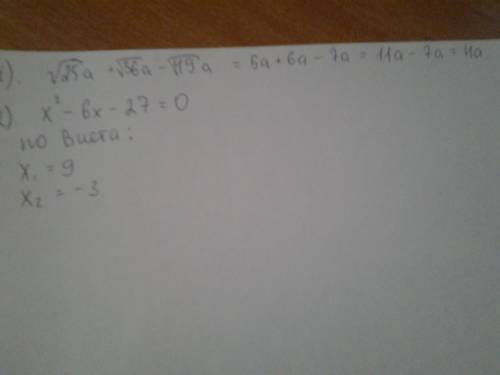 1). √25a + √36a - √49a = 5a + 6a - 7a = 11a - 7a = 4a
2) x² - 6x - 27 = 0
по Виета:
x₁ = 9
x₂ = -3